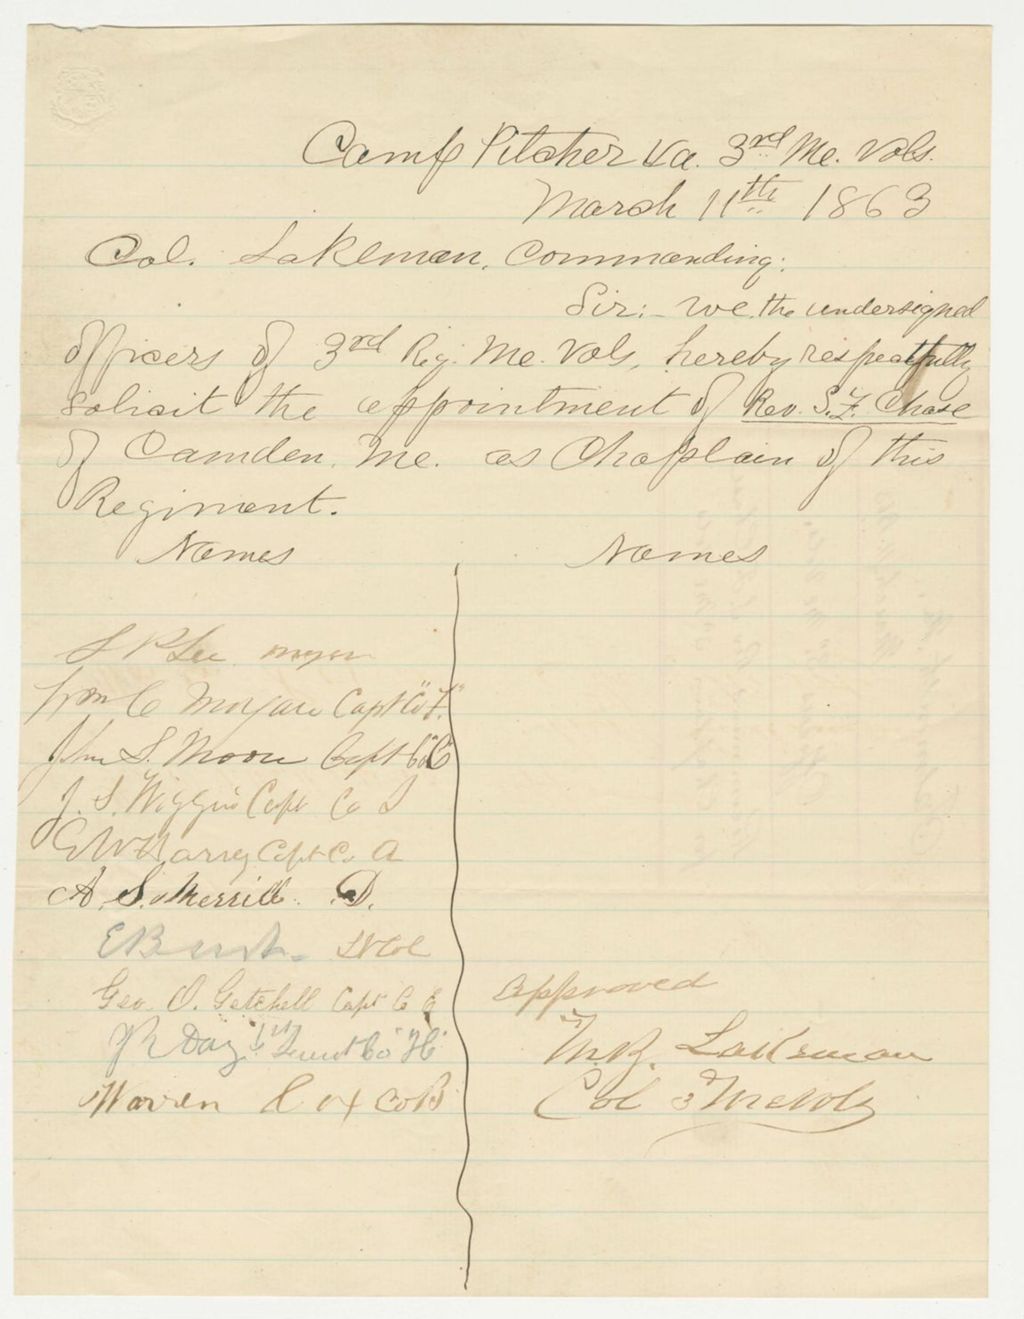 Camp Pitcher Va. 3rd Me. Vols.
March 11th 1863
Col. Lakeman, Commanding:
Sir:- We, the undersigned
officers of 3rd Reg. Me. Vols, hereby respectfully
solicit the appointment of Rev. S. F. Chase
of Camden, Me. as Chaplain of this
Regiment.
Names Names
S P Lee
Wm C Morgan Capt Co "F."
John S. Moore Capt Co "C"
J. S. Wiggin Capt Co I
G W Harvey Capt Co A
A. S. Merrill D.
E Burt Lt Col
Geo. O. Getchell Capt Co E
J R Day 1st Lieut Co "H"
Warren Cox Co B
Approved
M. B. Lakeman
Col 3 Me Vols